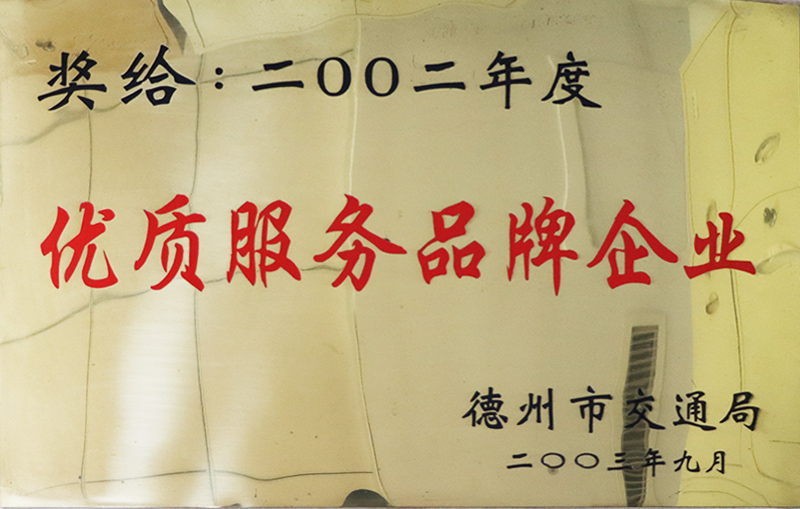 奖给：二〇〇二年度
优质服务品牌企业
德州市交通局
二〇〇三年九月